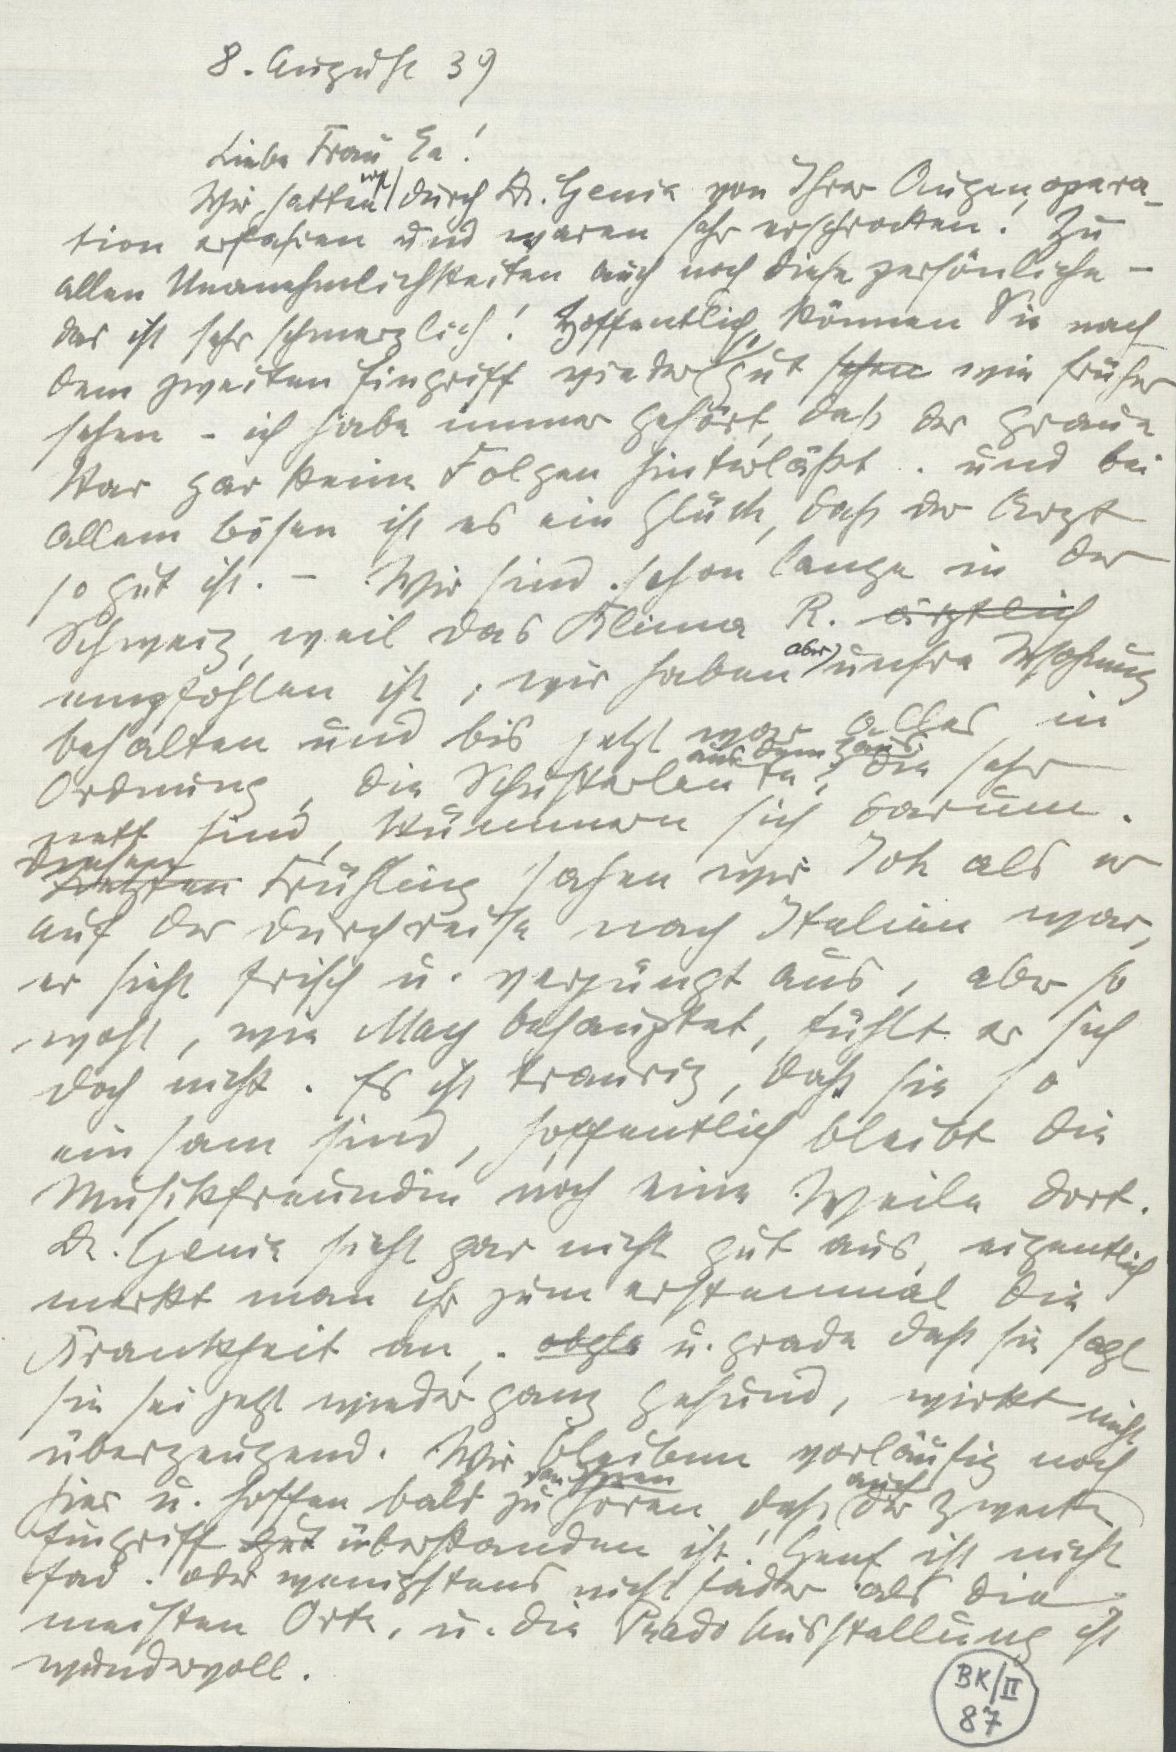 8. August 39
Liebe Frau Ea!
Wir hatten erst durch Dr. Genia von Ihrer Augenopera-
tion erfahren und waren sehr erschrocken. Zu
allen Unannehmlichkeiten auch noch diese persönliche –
das ist sehr schmerzlich! Hoffentlich können Sie nach
dem zweiten Eingriff wieder gut sehen wie früher
sehen – ich habe immer gehört, daß der graue
Star gar keine Folgen hinterläßt. und bei
allem bösen ist es ein Glück, daß der Arzt
so gut ist. – Wir sind schon lange in der
Schweiz, weil das Klima R. ärztlich
empfohlen ist, wir haben aber unsre Wohnung
behalten und bis jetzt war alles in
Ordnung, die Schusterleute aus dem Haus, die sehr
nett sind, kümmern sich darum.
diesen letzten Frühling sahen wir Joh als er
auf der Durchreise nach Italien war,
er sieht frisch u. verjüngt aus, aber so
wohl, wie May behauptet, fühlt er sich
doch nicht. Es ist traurig, daß sie so
einsam sind, hoffentlich bleibt die
Musikfreundin noch eine Weile dort.
Dr. Genia sieht gar nicht gut aus, eigentlich
merkt man ihr zum erstenmal die
Krankheit an, obgle u. grade daß sie sagt
sie sei jetzt wieder ganz gesund, wirkt nicht
überzeugend. Wir bleiben vorläufig noch
hier u. hoffen bald zu von Ihnen hören, daß auch der zweite
Eingriff gut überstanden ist! Genf ist nicht
fad. oder wenigstens nicht fader als die
meisten Orte, u. die Prado Ausstellung ist
wundervoll.
BK/II
87